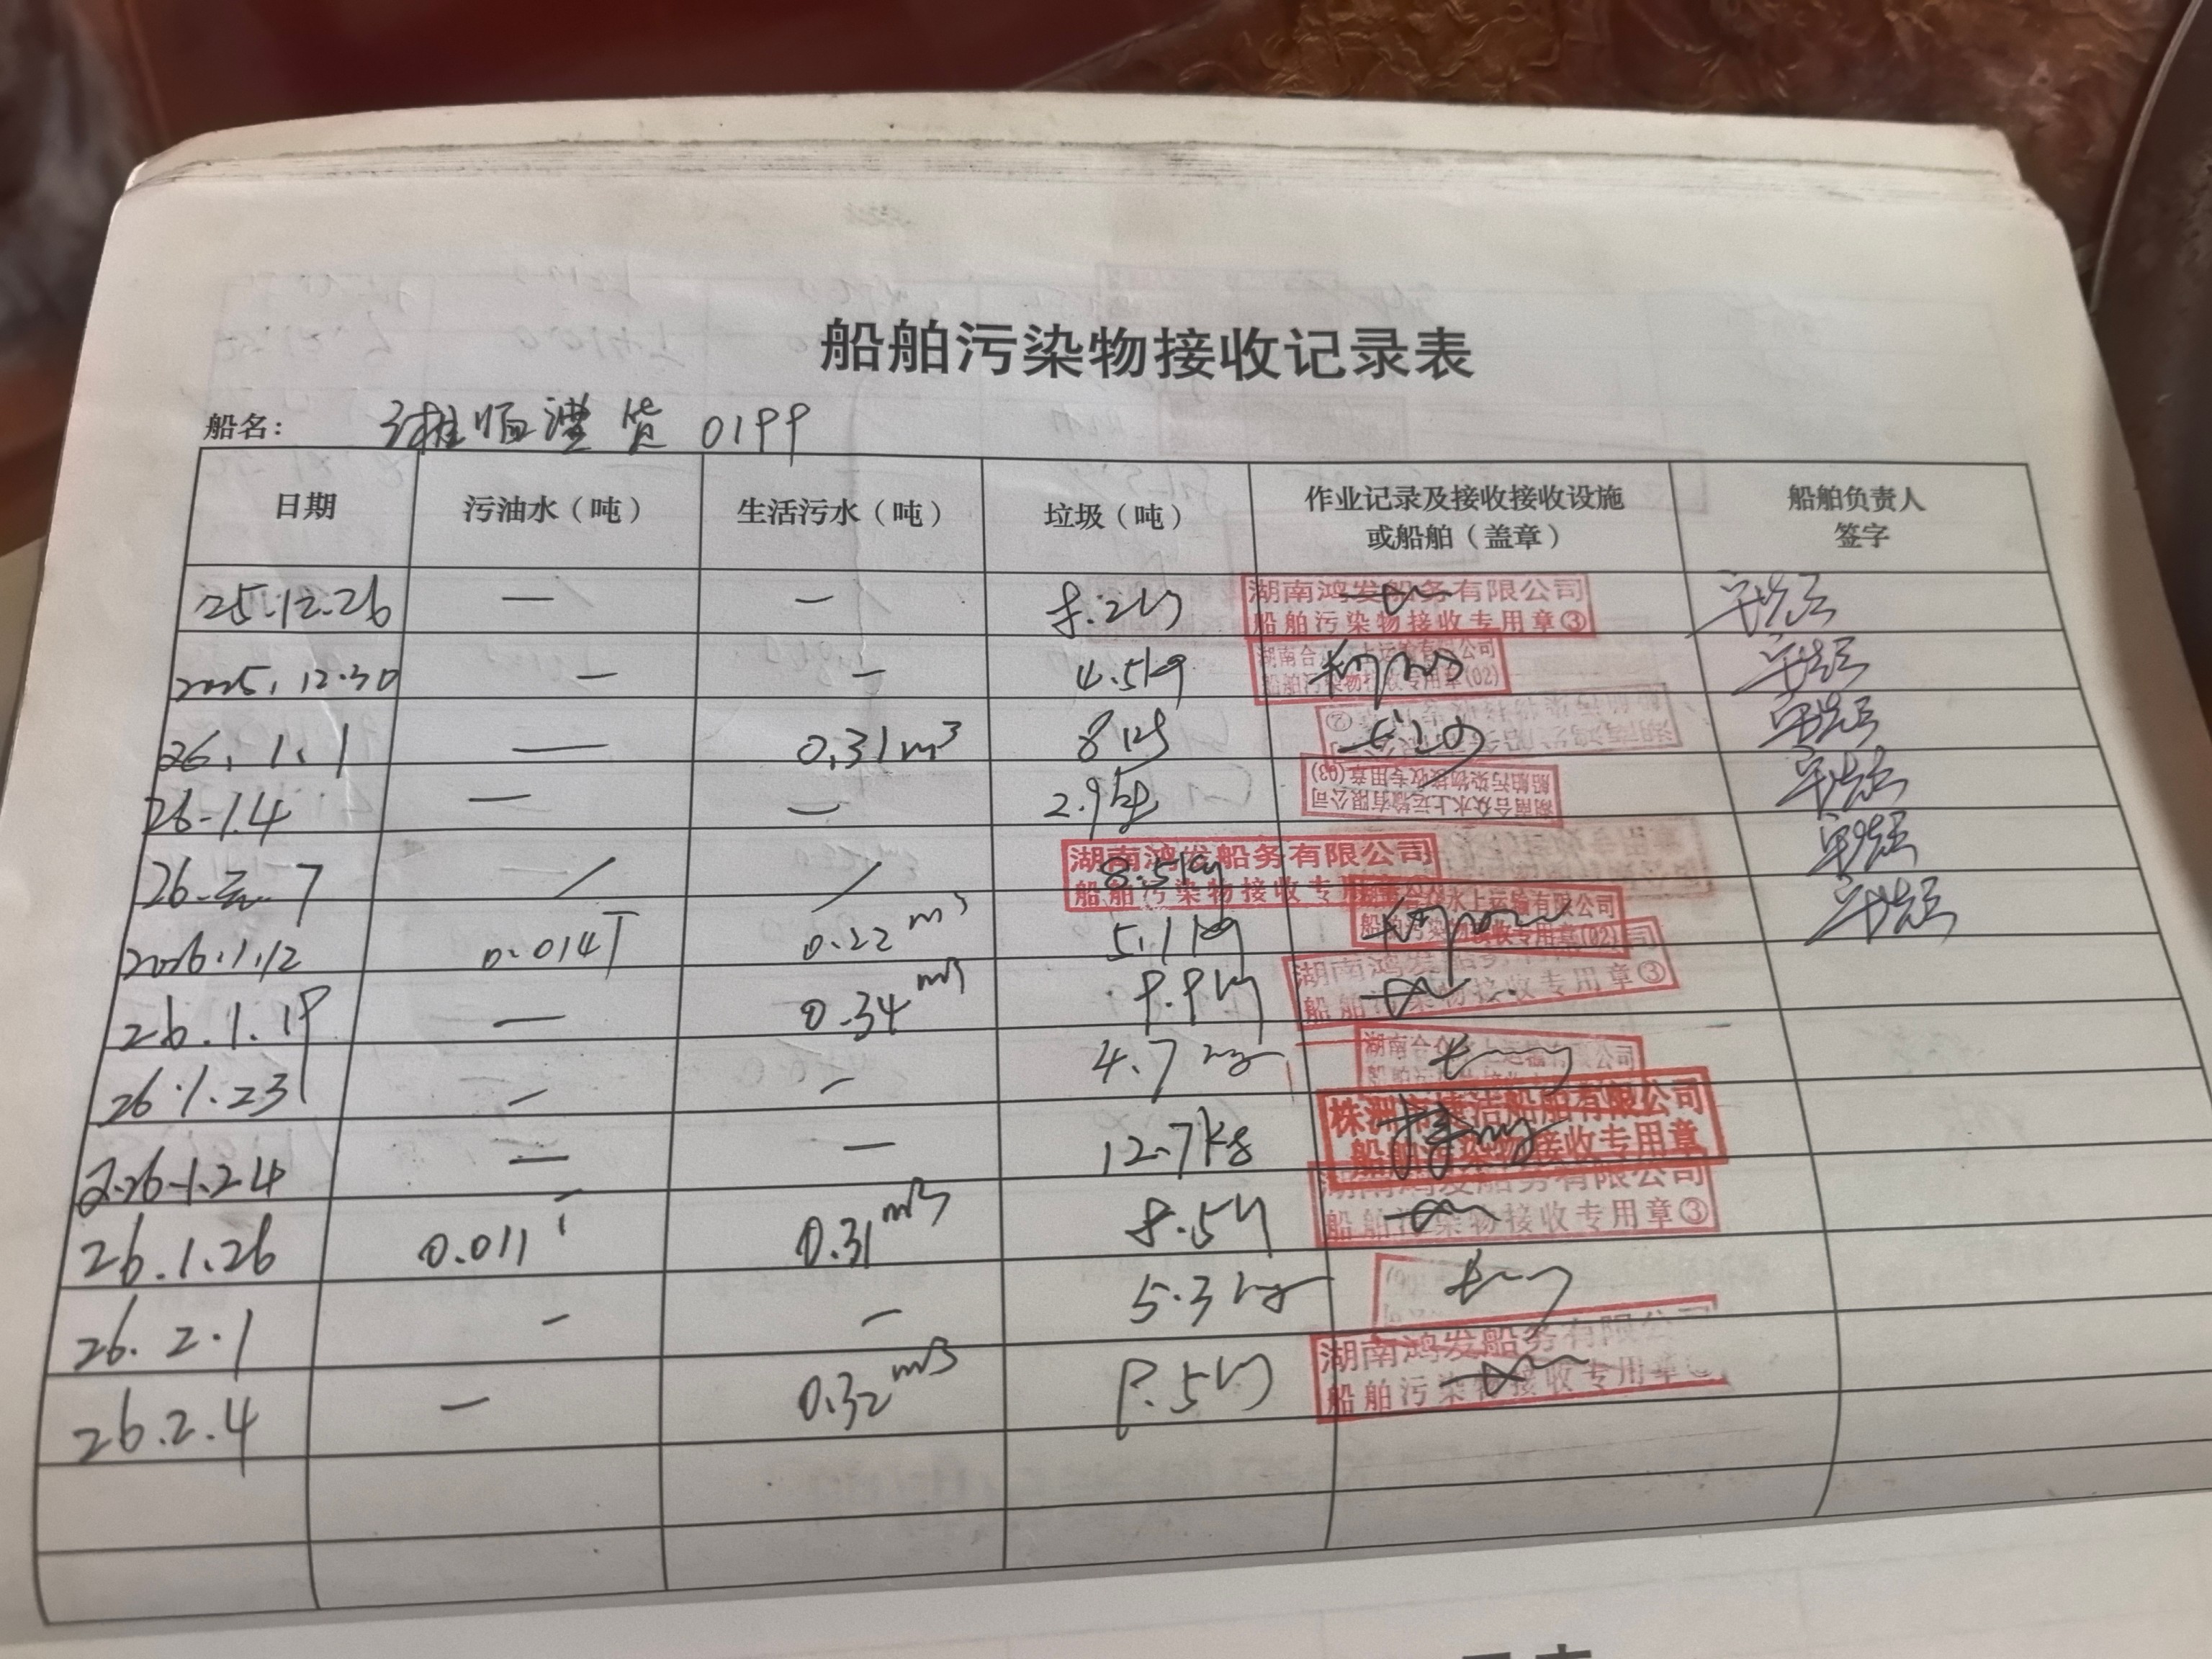 船舶污染物接收记录表
船名： 湘顺 货 0199
日期 污油水（吨） 生活污水（吨） 垃圾（吨） 作业记录及接收接收设施或船舶（盖章） 船舶负责人签字
25.12.26 — — 8.2kg 湖南鸿发船务有限公司 船舶污染物接收专用章③
2025.12.30 — — 4.5kg 湖南合众水上运输有限公司 船舶污染物接收专用章(02)
26.1.1 — 0.31m³ 8kg
26.1.4 — — 2.9kg 湖南合众水上运输有限公司 船舶污染物接收专用章(03)
26. 7 / / 8.5kg 湖南鸿发船务有限公司 船舶污染物接收专用章
2026.1.12 0.014T 0.22m³ 5.1kg 湖南合众水上运输有限公司 船舶污染物接收专用章(02)
26.1.19 — 0.34m³ 9.9kg 湖南鸿发船务有限公司 船舶污染物接收专用章③
26.1.23 — — 4.7kg 湖南合众水上运输有限公司
2.26.1.24 — — 12.7kg 株洲市 洁船舶有限公司 船舶污染物接收专用章
26.1.26 0.011 0.31m³ 8.5kg 湖南鸿发船务有限公司 船舶污染物接收专用章③
26.2.1 — — 5.3kg
26.2.4 — 0.32m³ 8.5kg 湖南鸿发船务有限公司 船舶污染物接收专用章